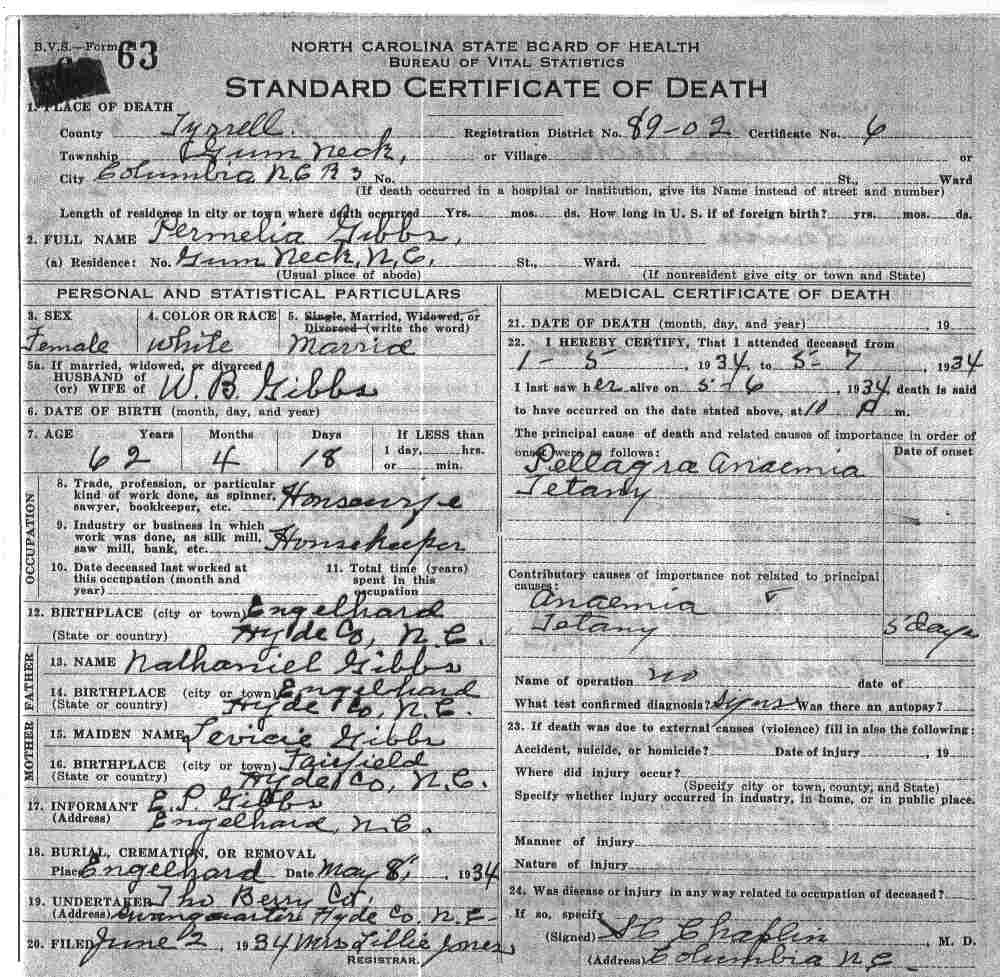 B.V.S.—Form 63
NORTH CAROLINA STATE BOARD OF HEALTH
BUREAU OF VITAL STATISTICS
STANDARD CERTIFICATE OF DEATH
1. PLACE OF DEATH
County Tyrrell. Registration District No. 89-02 Certificate No. 6
Township Gum Neck, or Village or
City Columbia N.C R3 No. St., Ward
(If death occurred in a hospital or institution, give its Name instead of street and number)
Length of residence in city or town where death occurred Yrs. mos. ds. How long in U. S. if of foreign birth? yrs. mos. ds.
2. FULL NAME Permelia Gibbs,
(a) Residence: No. Gum Neck, N.C, St., Ward.
(Usual place of abode) (If nonresident give city or town and State)
PERSONAL AND STATISTICAL PARTICULARS
3. SEX 4. COLOR OR RACE 5. Single, Married, Widowed, or
Divorced (write the word)
Female White Marrid
5a. If married, widowed, or divorced
HUSBAND of
(or) WIFE of W. B. Gibbs
6. DATE OF BIRTH (month, day, and year)
7. AGE Years Months Days If LESS than
1 day, hrs.
or min.
62 4 18
OCCUPATION
8. Trade, profession, or particular
kind of work done, as spinner,
sawyer, bookkeeper, etc. Housewife
9. Industry or business in which
work was done, as silk mill,
saw mill, bank, etc. Housekeeper
10. Date deceased last worked at
this occupation (month and
year)
11. Total time (years)
spent in this
occupation
12. BIRTHPLACE (city or town) Engelhard
(State or country) Hyde Co, N.C.
FATHER
13. NAME Nathaniel Gibbs
14. BIRTHPLACE (city or town) Engelhard
(State or country) Hyde Co, N.C.
MOTHER
15. MAIDEN NAME Levicie Gibbs
16. BIRTHPLACE (city or town) Fairfield
(State or country) Hyde Co, N.C.
17. INFORMANT E. S. Gibbs
(Address) Engelhard, N.C.
18. BURIAL, CREMATION, OR REMOVAL
Place Engelhard Date May 8, 1934
19. UNDERTAKER Tho Berry Co,
(Address) Swanquarter Hyde Co, N.C-
20. FILED June 2, 1934 Mrs Lillie Jones
REGISTRAR.
MEDICAL CERTIFICATE OF DEATH
21. DATE OF DEATH (month, day, and year) 19
22. I HEREBY CERTIFY, That I attended deceased from
1-5, 1934, to 5-7, 1934
I last saw her alive on 5-6, 1934, death is said
to have occurred on the date stated above, at 10 P m.
The principal cause of death and related causes of importance in order of
onset were as follows: Date of onset
Pellagra Anaemia
Tetany
Contributory causes of importance not related to principal
causes:
Anaemia
Tetany 5 days
Name of operation no date of
What test confirmed diagnosis? Syms Was there an autopsy?
23. If death was due to external causes (violence) fill in also the following:
Accident, suicide, or homicide? Date of injury, 19
Where did injury occur?
(Specify city or town, county, and State)
Specify whether injury occurred in industry, in home, or in public place.
Manner of injury
Nature of injury
24. Was disease or injury in any way related to occupation of deceased?
If so, specify
(Signed) Chaplin, M. D.
(Address) Columbia N.C